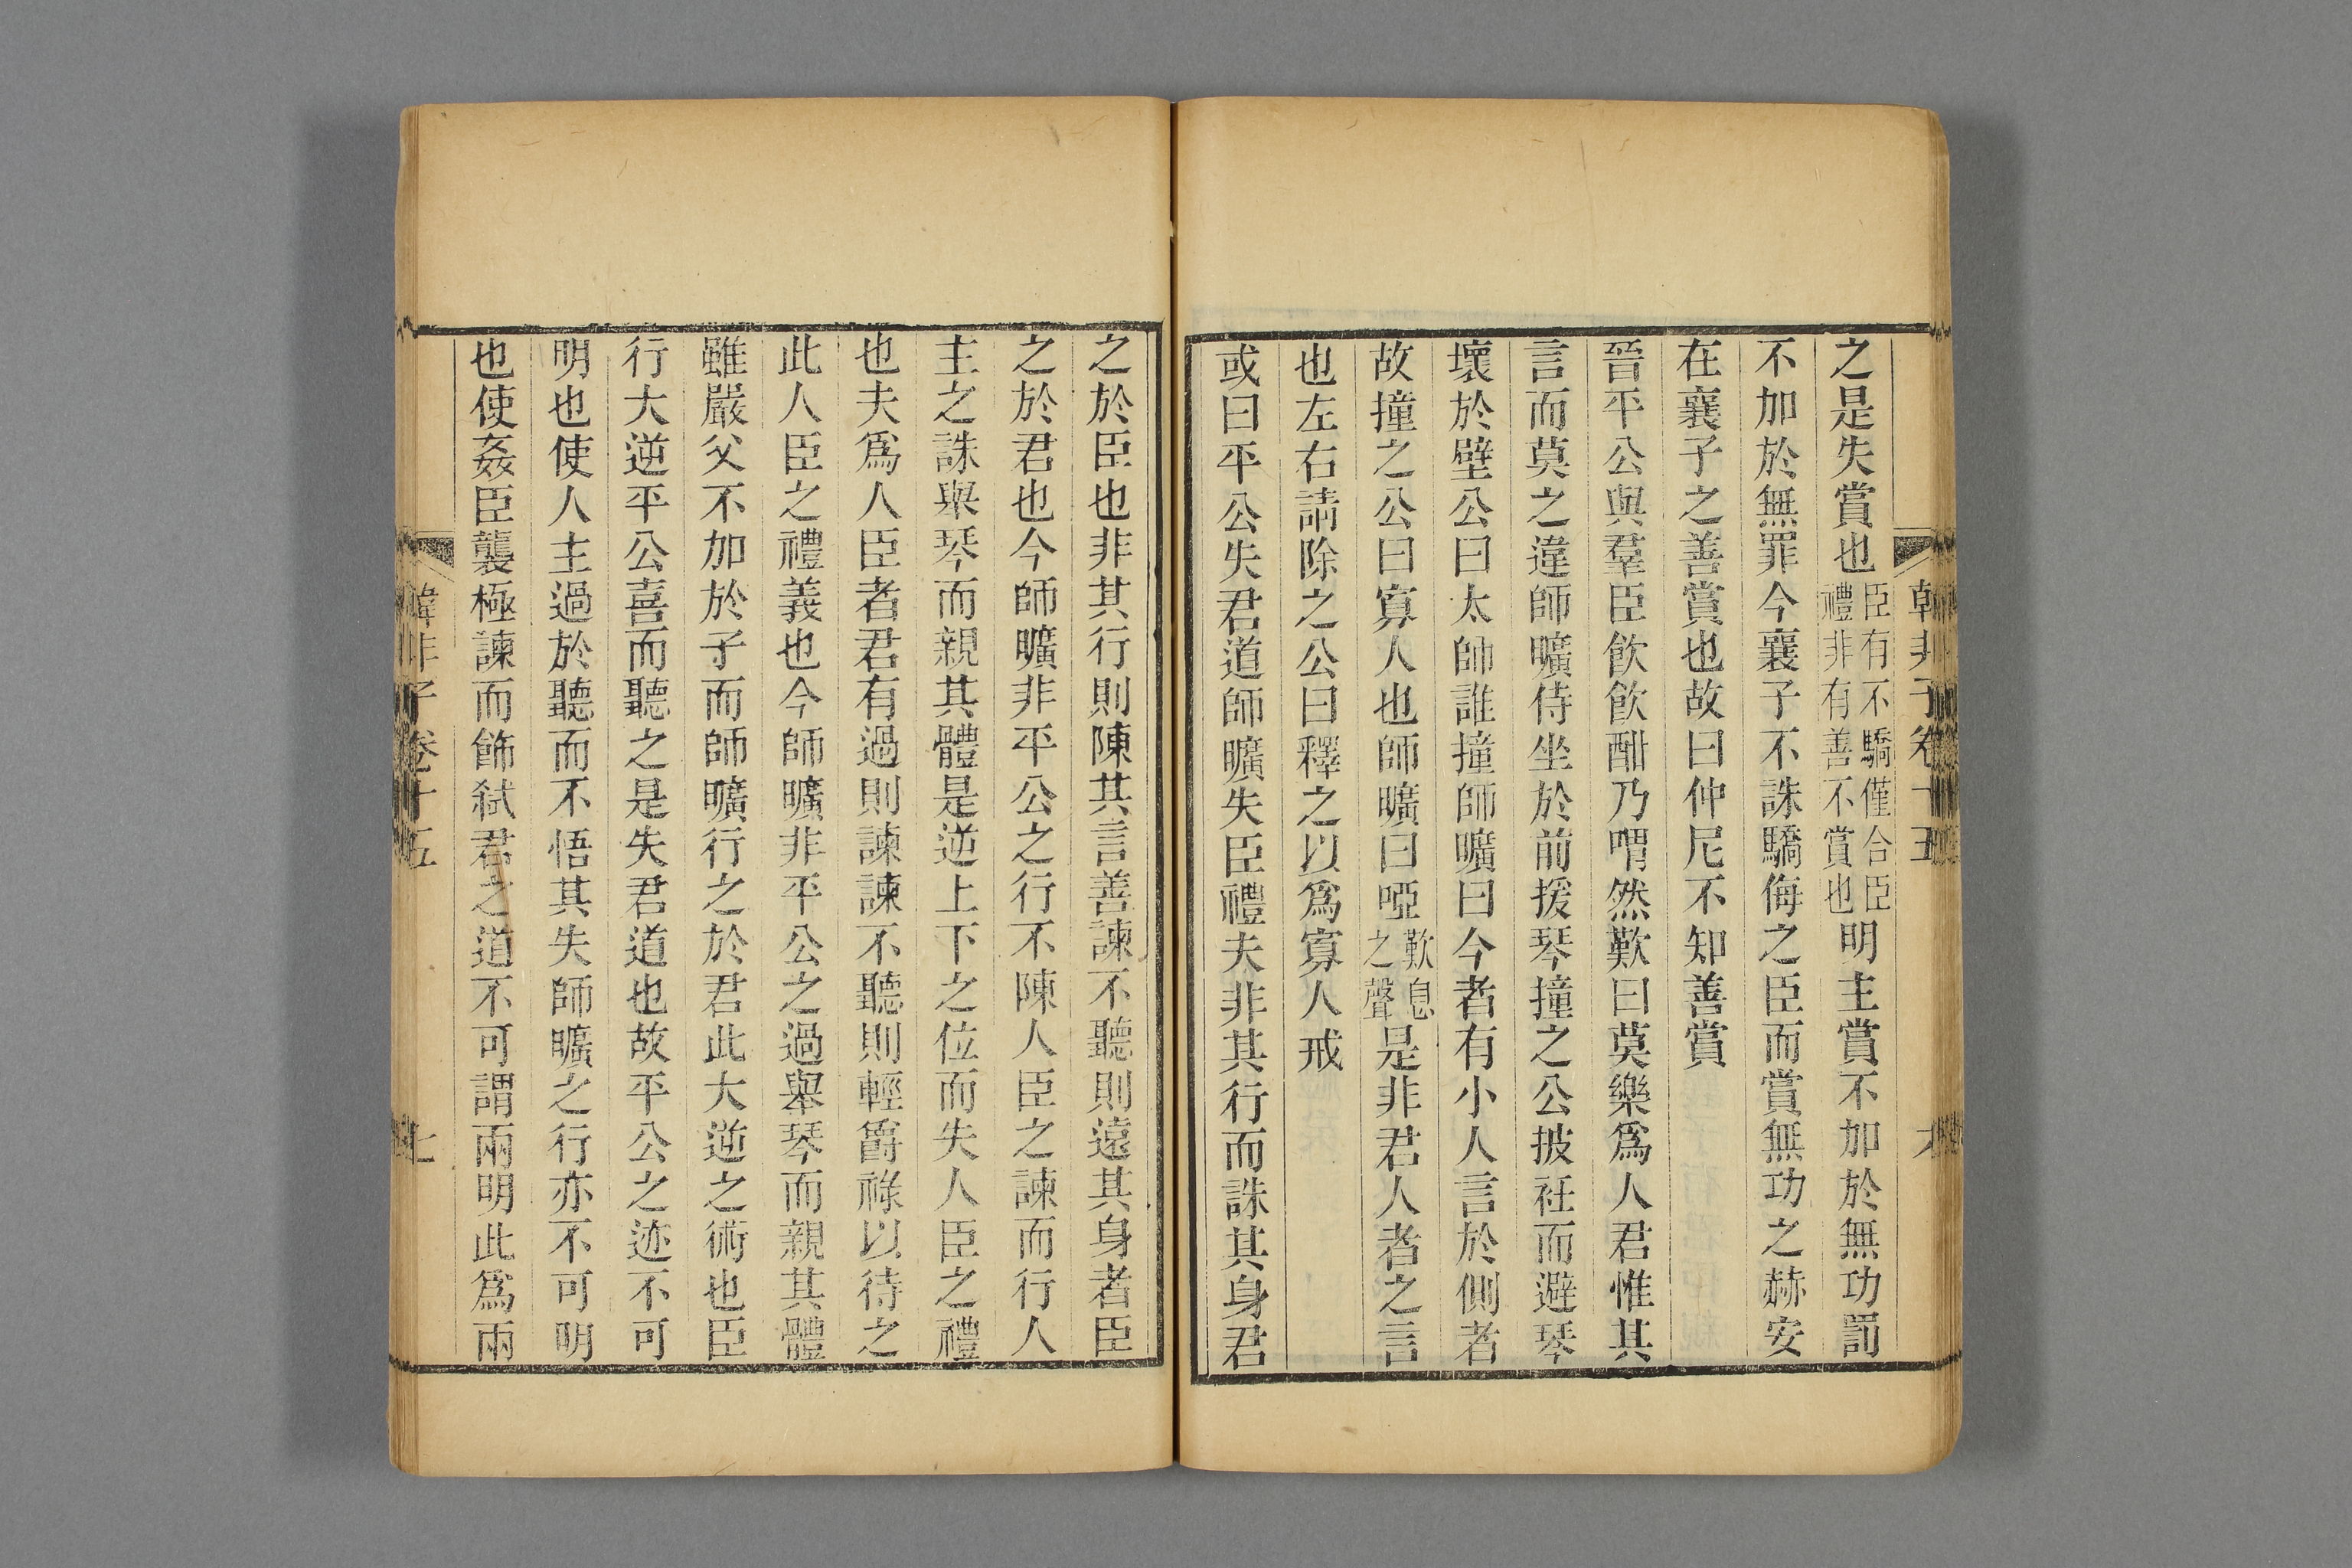 韓非子卷十五
之是失賞也臣有不驕僅合臣禮非有善不賞也明主賞不加於無功罰
不加於無罪今襄子不誅驕侮之臣而賞無功之赫安
在襄子之善賞也故曰仲尼不知善賞
晉平公與羣臣飲飲酣乃喟然歎曰莫樂爲人君惟其
言而莫之違師曠侍坐於前援琴撞之公披衽而避琴
壞於壁公曰太師誰撞師曠曰今者有小人言於側者
故撞之公曰寡人也師曠曰啞歎息之聲是非君人者之言
也左右請除之公曰釋之以爲寡人戒
或曰平公失君道師曠失臣禮夫非其行而誅其身君
之於臣也非其行則陳其言善諫不聽則遠其身者臣
之於君也今師曠非平公之行不陳人臣之諫而行人
主之誅舉琴而親其體是逆上下之位而失人臣之禮
也夫爲人臣者君有過則諫諫不聽則輕爵祿以待之
此人臣之禮義也今師曠非平公之過舉琴而親其體
雖嚴父不加於子而師曠行之於君此大逆之術也臣
行大逆平公喜而聽之是失君道也故平公之迹不可
明也使人主過於聽而不悟其失師曠之行亦不可明
也使姦臣襲極諫而飾弒君之道不可謂兩明此爲兩
韓非子卷十五
七